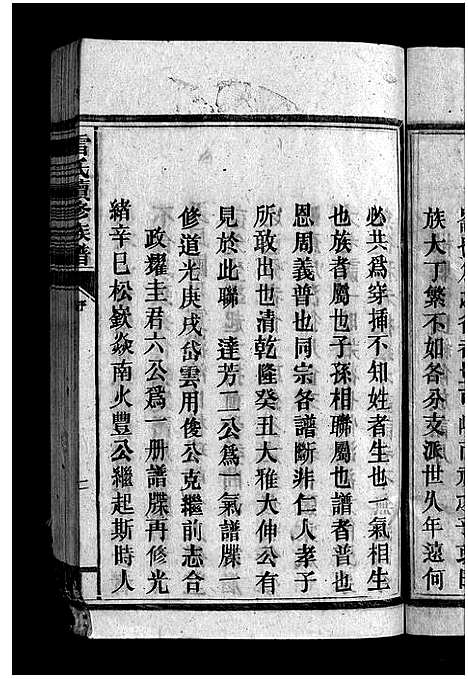 族大丁繁不如各分支派世久年遠何
必共爲穿揷不知姓者生也一氣相生
也族者屬也子孫相聯屬也譜者普也
恩周義普也同宗各譜斷非仁人孝子
所敢出也清乾隆癸丑大雅大伸公有
見於此聯　達芳二公爲一氣譜牒一
修道光庚戌岱雲用俊公克繼前志合
政耀主君六公爲一册譜牒再修光
緒辛巳松嶔焱南火豐公繼起斯時人
雷氏續修族譜
序